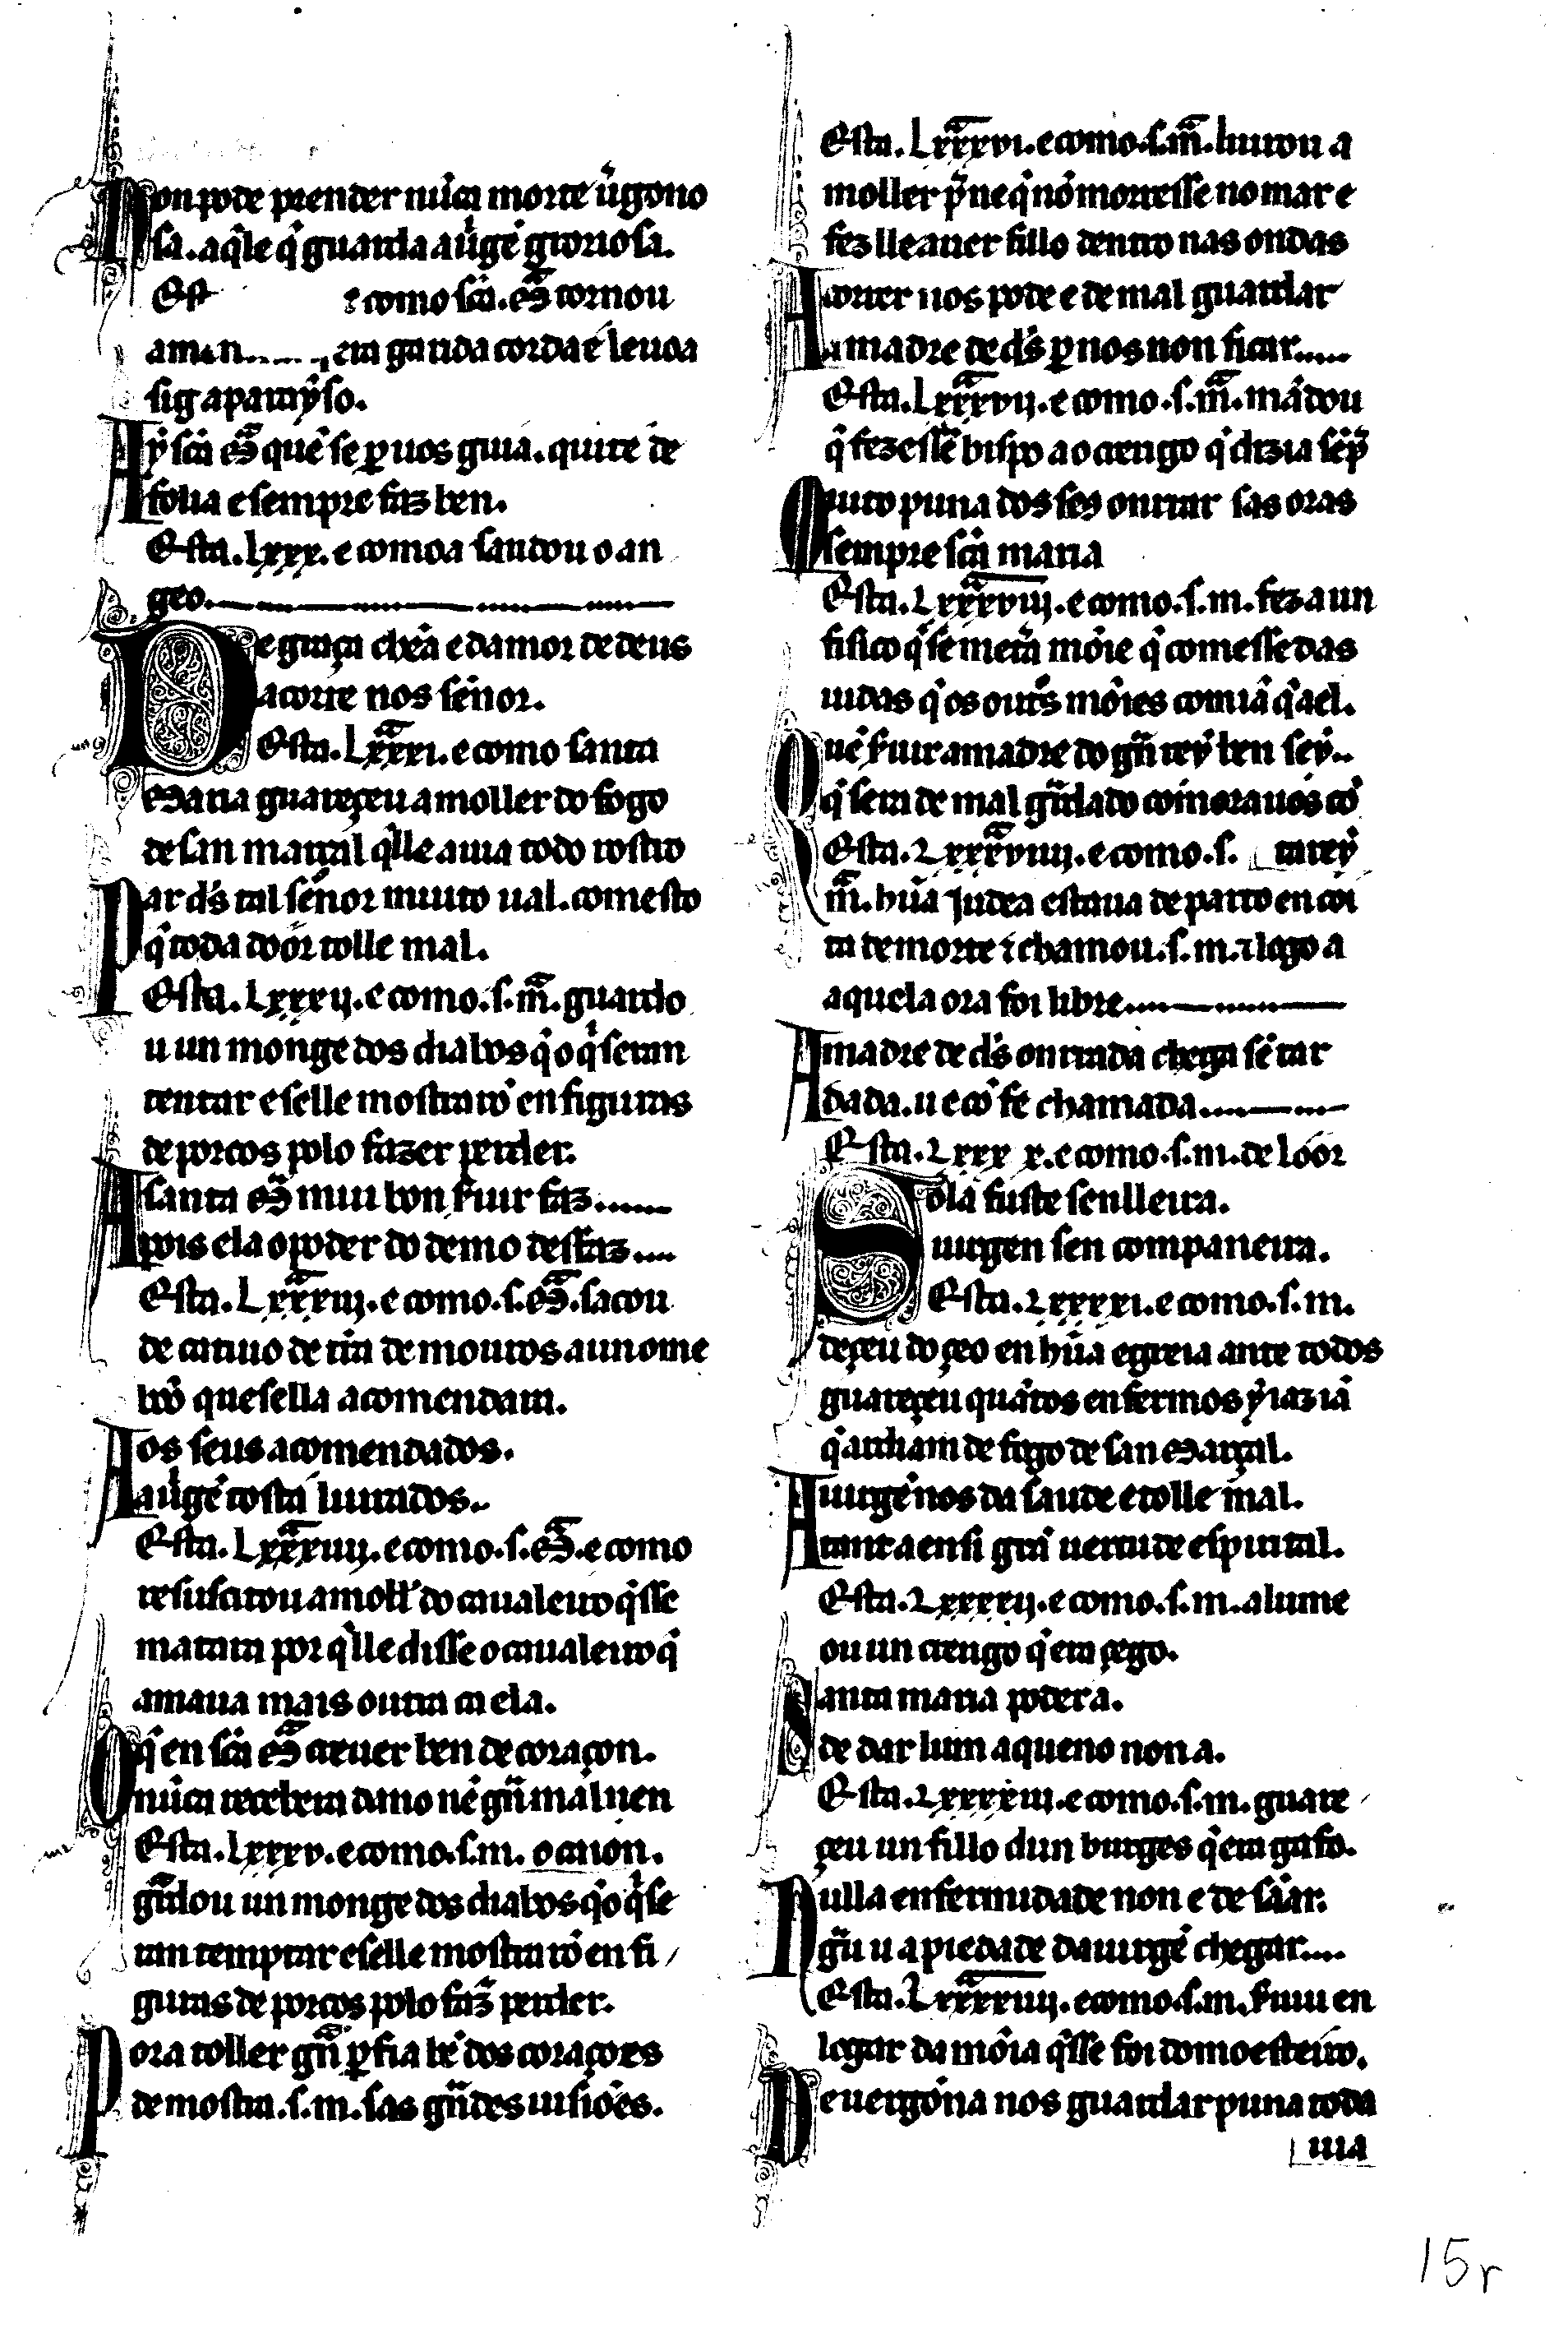 Non pode prender nũca morte ũgono
sa. aq̃le q̃ guarda aũgẽ gloriosa.
Est e como scã. Mã tornou
aman era garrida corda e leuoa
sig a parayso.
Ay scã Mã quẽ se ꝑ uos guia. quite de
folia e sempre faz ben.
Esta. lxxx. e como a saudou o an
geo.
De graça chẽa e damor de deus
acorre nos sẽnor.
Esta. Lxxxi. e como santa
Maria guareçeu a moller do fogo
de san marçal q̃lle auia todo rostro
Par d̃s tal sẽnor muito ual. com esto
q̃ toda door tolle mal.
Esta. Lxxxij. e como. s. m̃. guardo
u un monge dos diabos q̃o q̃seran
tentar e selle mostrarõ en figuras
de porcos polo fazer perder.
A santa Mã mui bon s̃uir faz......
pois ela o poder do demo desfaz....
Esta. Lxxxiij. e como. s. Mã. sacou
de catiuo de t̃ra de mouros a un ome
bõo que sella acomendara.
Aos seus acomendados.
a uĩgẽ tosta liurados..
Esta. Lxxxiiij. e como. s. Mã. e como
resuscitou a moll̃ do caualeiro q̃sse
matara por q̃lle disse o caualeiro q̃
amaua mais outra ca ela.
O q̃ en scã Mã creuer ben de coraçon.
nũca reçebera dano nẽ grã mal uen
Esta. Lxxxv. e como. s. m. ocaion.
gr̃dou un monge dos diabos q̃o q̃se
ran temptar e selle mostrarõ en fi
guras de porcos polo faz̃ perder.
Pora toller grã ꝑfia bẽ dos coraçoes
demostra. s. m. sas grãdes uisiões.
Esta. Lxxxvi. e como. s. m̃. liurou a
moller p̃ne q̃ nõ morresse no mar e
fez lle auer fillo dentro nas ondas
Acorrer nos pode e de mal guardar
a madre de d̃s ꝑ nos non ficar.....
Esta. Lxxxvij. e como. s. m̃. mãdou
q̃ fezessẽ bispo ao crengo q̃ dizia sẽp̃
Muito puna dos ses onrrar sas oras
sempre scã maria
Esta. Lxxxviij. e como. s. m. fez a un
fisico q̃ se metã mõie q̃ comesse das
uidas q̃ os outr̃s mõies comiã q̃ a el.
Quẽ s̃uir a madre do grã rey ben sey..
q̃ sera de mal gr̃dado como ra uos cõ
Esta. Lxxxviiij. e como. s. tarey
m̃. hũa Judea estaua de parto en coi
ta de morte ⁊ chamou. s. m. ⁊ logo a
aquela ora foi libre....
A madre de d̃s onrrada chega sẽ tar
dada. u e cõ fe chamada....
Esta. Lxxx x. e como. s. m. de loor
Sola fuste senlleira.
uirgen sen companeira.
Esta. Lxxxxi. e como. s. m.
deçeu do çeo en hũa egreia ante todos
guareçeu quãtos enfermos y iaziã
q̃ ardiam de fogo de san Marçal.
A uirgẽ nos da saude e tolle mal.
tanta en si grã uertude esp̃ital.
Esta. Lxxxxij. e como. s. m. alume
ou un crengo q̃ era çego.
Santa maria poder a.
de dar lum a queno non a.
Esta. Lxxxxiij. e como. s. m. guare
çeu un fillo dun burges q̃ era gafo.
Nulla enfermidade non e de sãar.
grã u a piedade da uirgẽ chegar....
Esta. Lxxxxiiij. e como. s. m. s̃uiu en
logar da mõia q̃sse foi do moesteiro.
De uergõna nos guardar puna toda
uia
15r